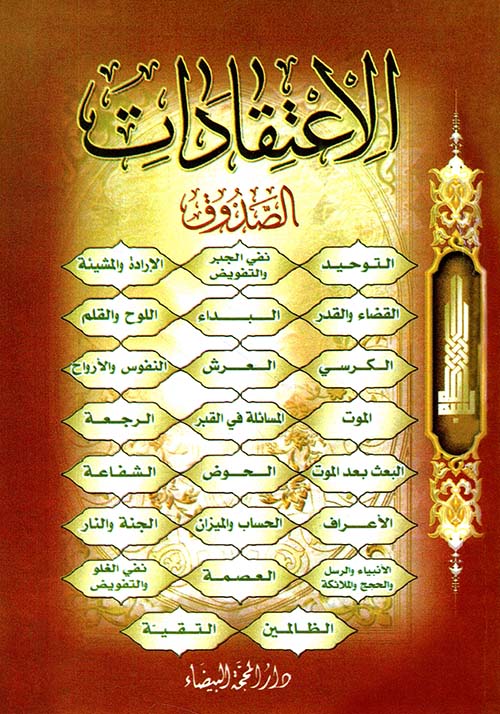 الإِعْتِقَادَاتِ
الصَّدُوق
التوحيد
نفي الجبر
والتفويض
الإرادة والمشيئة
القضاء والقدر
البداء
اللوح والقلم
الكرسي
العرش
النفوس والأرواح
الموت
المسائلة في القبر
الرجعة
البعث بعد الموت
الحوض
الشفاعة
الأعراف
الحساب والميزان
الجنة والنار
الأنبياء والرسل
والحجج والملائكة
العصمة
نفي الغلو
والتفويض
الظالمين
التقية
دار المحجة البيضاء